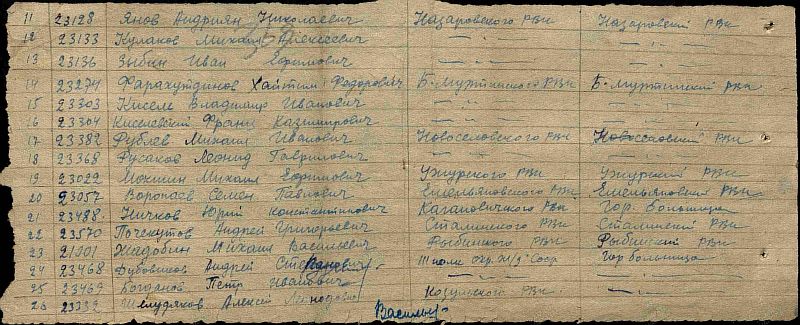 11 23128 Янов Андриян Николаевич Назаровского РВК Назаровский РВК
12 23133 Кулаков Михаил Алексеевич — " — — " —
13 23136 Зыбин Иван Ефимович — " — — " —
14 23274 Фарахутдинов Федорович Б-Муртинского РВК Б-Муртинский РВК
15 23303 Киселе Владимир Иванович — " — — " —
16 23304 Киселевский Франц Казимирович — " — — " —
17 23382 Рублев Михаил Иванович Новоселовского РВК Новоселовский РВК
18 23368 Русаков Леонид Гаврилович — " — — " —
19 23022 Мокшин Михаил Ефимович Ужурского РВК Ужурский РВК
20 23057 Воропаев Семен Павлович Емельяновского РВК Емельяновский РВК
21 23488 Ничков Юрий Константинович Кагановичского РВК Гор. больница
22 23570 Почекутов Андрей Григорьевич Сталинского РВК Сталинский РВК
23 21101 Жадобин Михаил Васильевич Рыбинского РВК Рыбинский РВК
24 23468 Дубовиков Андрей Степанович Школа Гор больница
25 23469 Богданов Петр Иванович — " — — " —
26 23332 Шелудяков Алексей Козульского РВК — " —
Василье